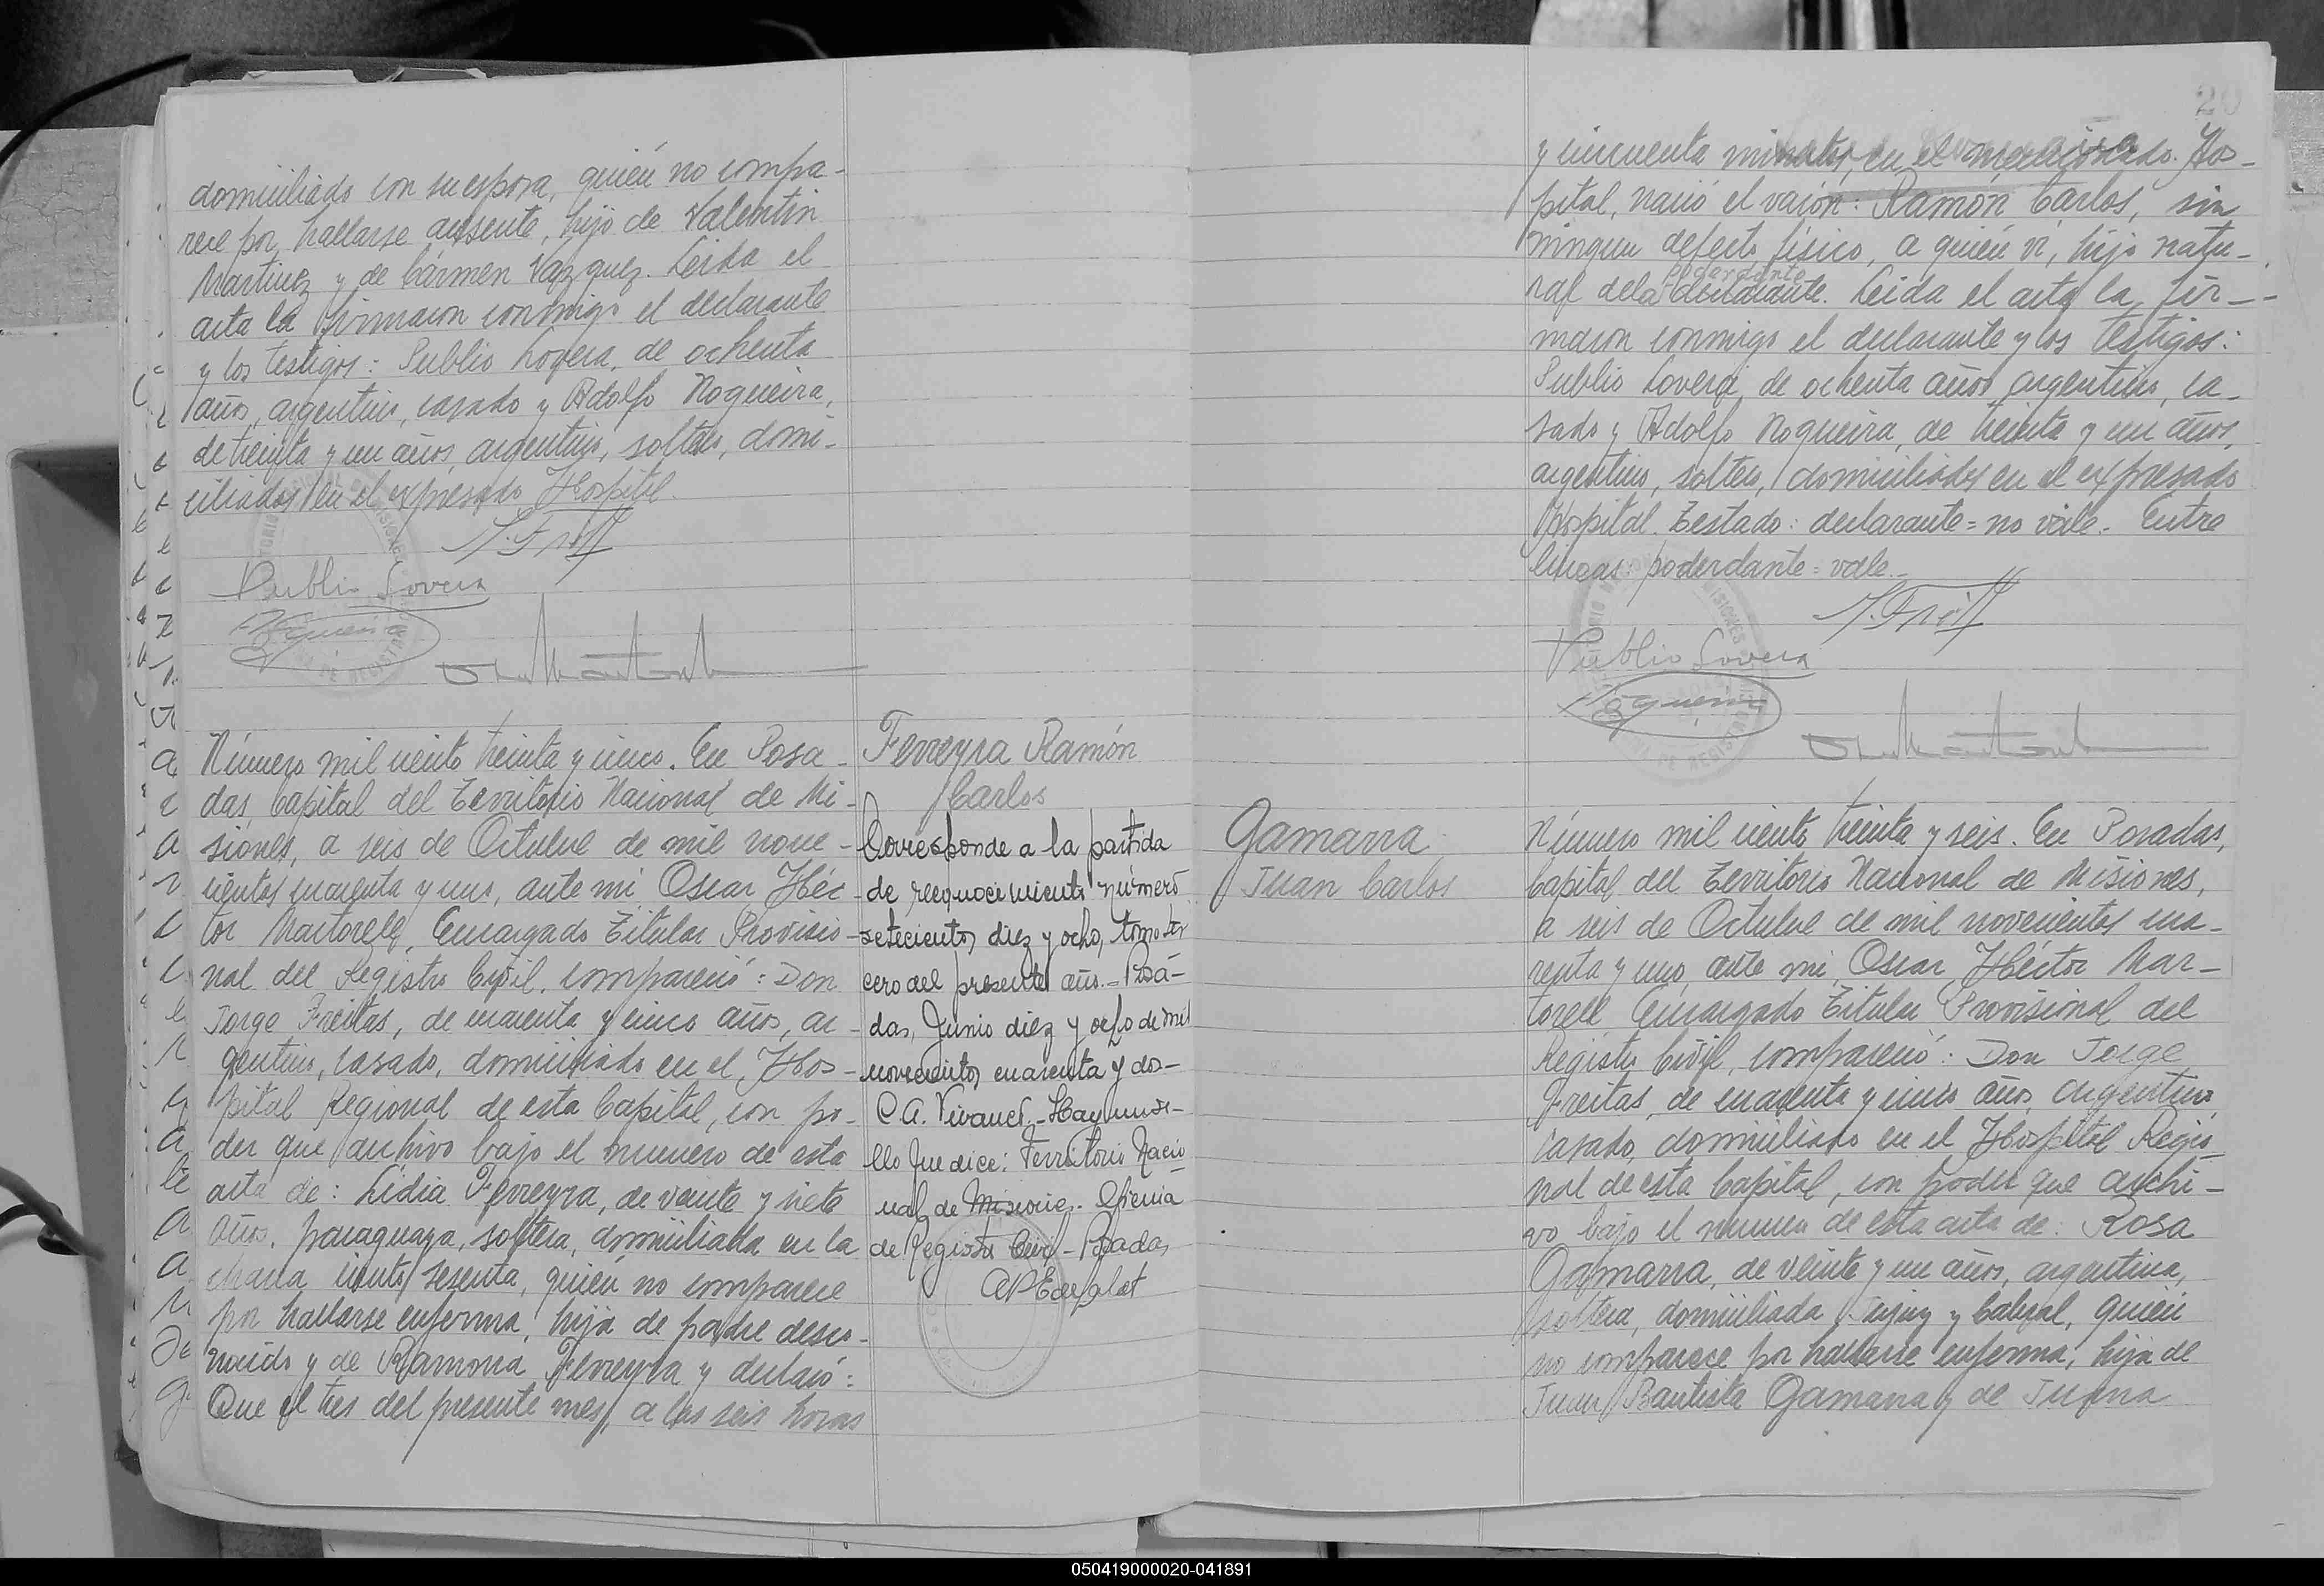 domiciliado con su esposa, quién no compa-
rece por hallarse ausente, hijo de Valentin
Martinez y de Cármen Vazquez. Leida el
acta la firmaron conmigo el declarante
y los testigos: Publio Lovera, de ochenta
años, argentino, casado y Adolfo Nogueira,
de treinta y un años, argentino, soltero, domi-
ciliados en el expresado Hospital.
Publio Lovera
Número mil ciento treinta y cinco. En Posa-
das, Capital del Territorio Nacional de Mi-
siones, a seis de Octubre de mil nove-
cientos cuarenta y uno, ante mi Oscar Héc-
tor Martorell, Encargado Titular Provisio-
nal del Registro Civil, compareció: Don
Jorge Freitas, de cuarenta y cinco años, ar-
gentino, casado, domiciliado en el Hos-
pital Regional de esta Capital, con po-
der que archivo bajo el numero de esta
acta de: Lidia Ferreyra, de veinte y siete
años, paraguaya, soltera, domiciliada en la
chacra ciento sesenta, quién no comparece
por hallarse enferma, hija de padre desco-
nocido y de Ramona Ferreyra y declaró:
Que el tres del presente mes, a las seis horas
Ferreyra Ramón
Carlos
Corresponde a la partida
de reconocimiento número
setecientos diez y ocho, tomo ter
cero del presente año.- Posa-
das, Junio diez y ocho de mil
novecientos cuarenta y dos-
C.A. Vivanco.- Hay un se-
llo que dice: Territorio Nacio
nal de Misiones. Oficina
de Registro Civil - Posadas
20
y cincuenta minutos, en el mencionado Hos-
pital, nació el varón: Ramón Carlos, sin
ningun defecto físico, a quién ví, hijo natu-
poderdante
ral de la declarante. Leida el acta la fir-
maron conmigo el declarante y los testigos:
Publio Lovera, de ochenta años, argentino, ca-
sado y Adolfo Nogueira, de treinta y un años,
argentino, soltero, domiciliados en el expresado
Hospital. Testado: declarante = no vale. Entre
lineas: poderdante = vale.-
Publio Lovera
Gamarra
Juan Carlos
Número mil ciento treinta y seis. En Posadas,
Capital del Territorio Nacional de Misiones,
a seis de Octubre de mil novecientos cua-
renta y uno, ante mi Oscar Héctor Mar-
torell Encargado Titular Provisional del
Registro Civil, compareció: Don Jorge
Freitas, de cuarenta y cinco años, argentino,
casado, domiciliado en el Hospital Regio-
nal de esta Capital, con poder que archi-
vo bajo el numero de esta acta de: Rosa
Gamarra, de veinte y un años, argentina,
soltera, domiciliada Jujuy y Cabral, quién
no comparece por hallarse enferma, hija de
Juan Bautista Gamarra y de Juana
050419000020-041891